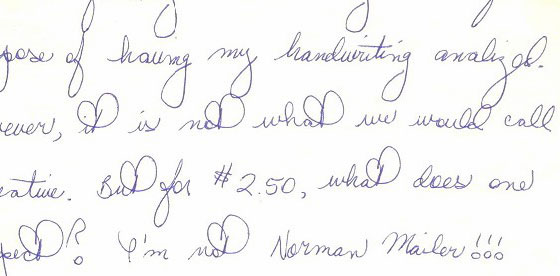 pose of having my handwriting analized.
ever, it is not what we would call
eative. But for $2.50, what does one
pect? I'm not Norman Mailer!!!